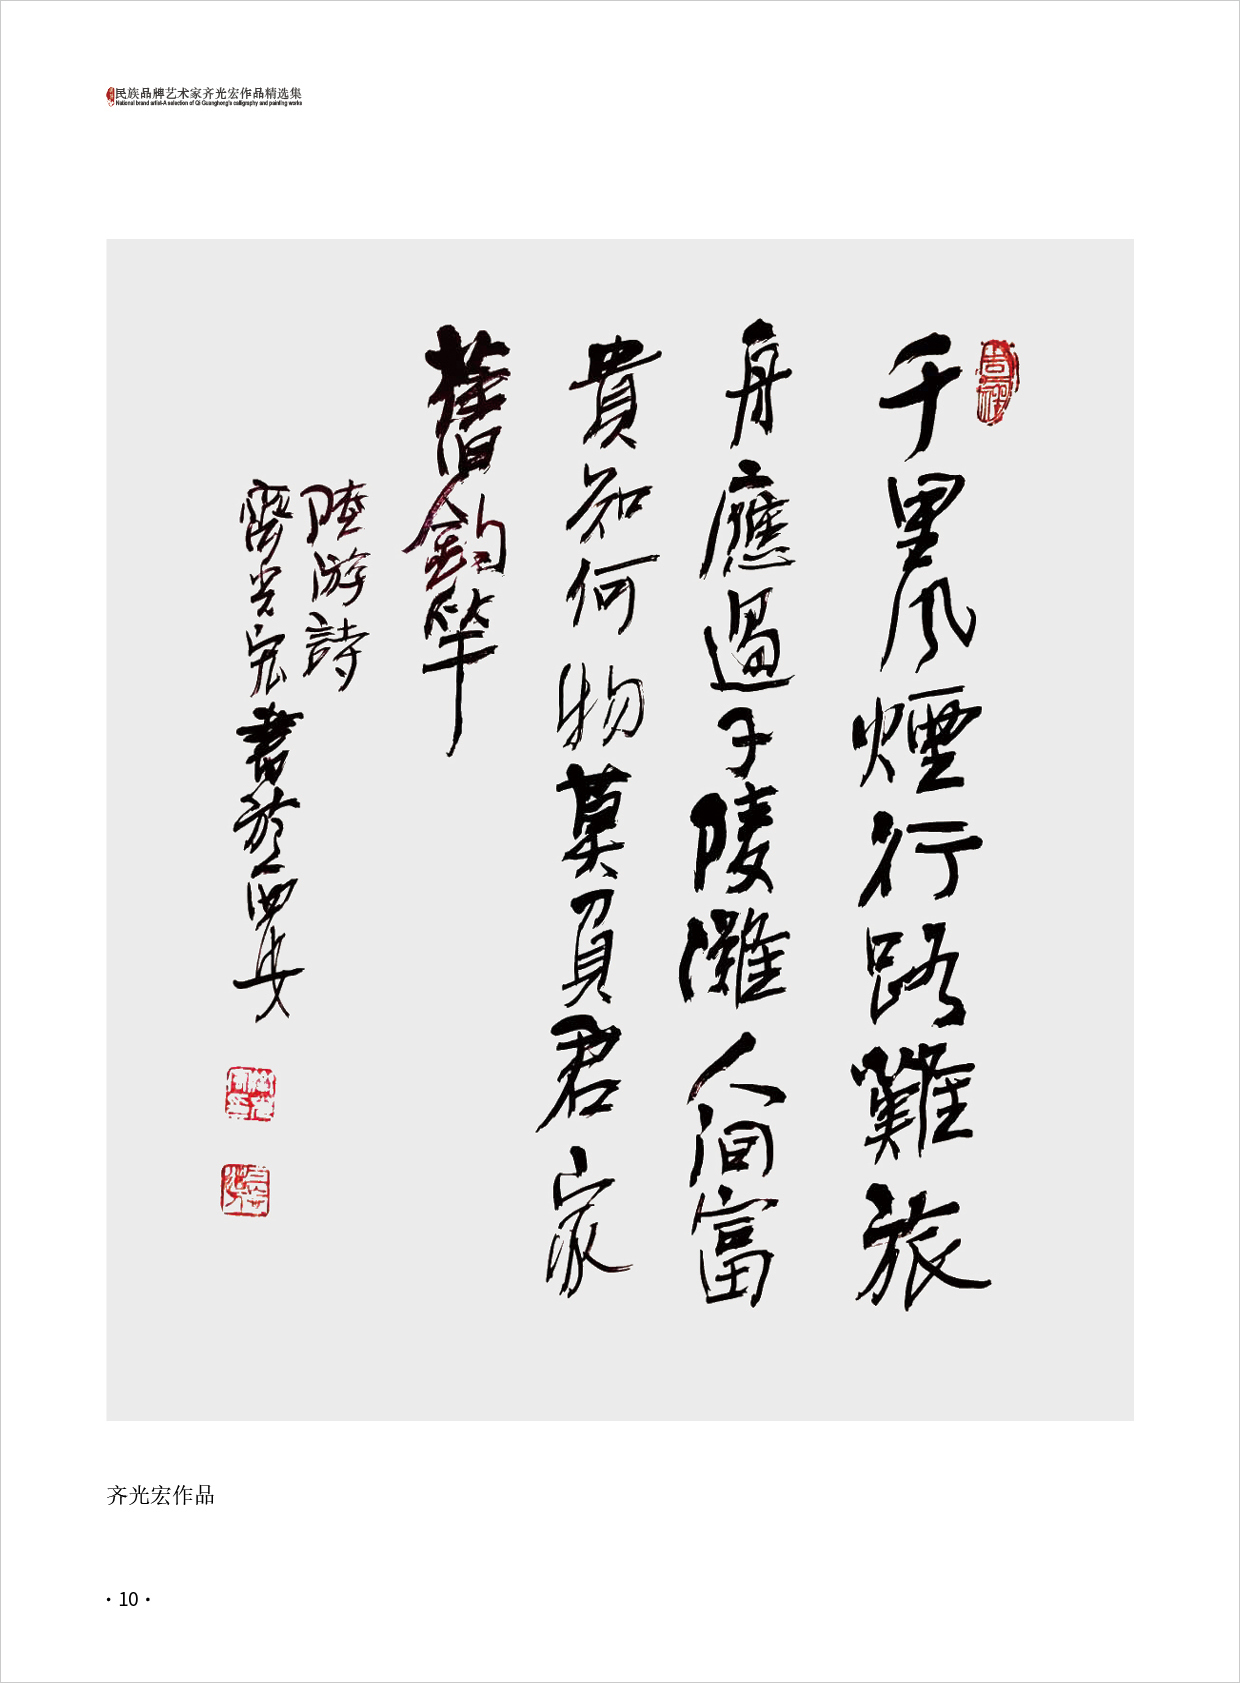 民族品牌艺术家齐光宏作品精选集
National brand artist-A selection of Qi Guanghong's calligraphy and painting works
千里风煙行路難旅
舟應過子陵灘人间富
貴知何物莫負君家
舊釣竿
陸游詩
齊光宏書於西安
齐光宏作品
· 10 ·